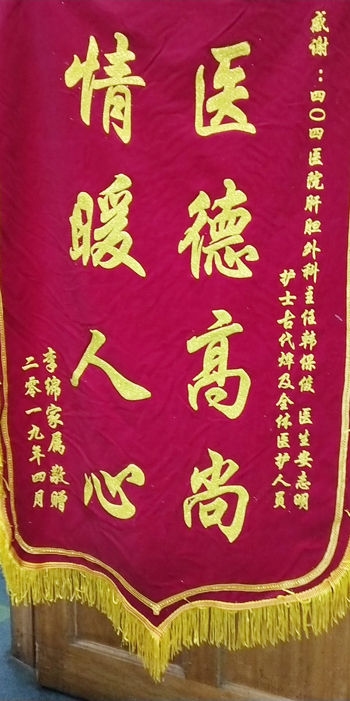 感谢：四〇四医院肝胆外科主任韩保俊 医生安志明
护士古代烨及全体医护人员
医德高尚
情暖人心
李锦家属 敬赠
二零一九年四月